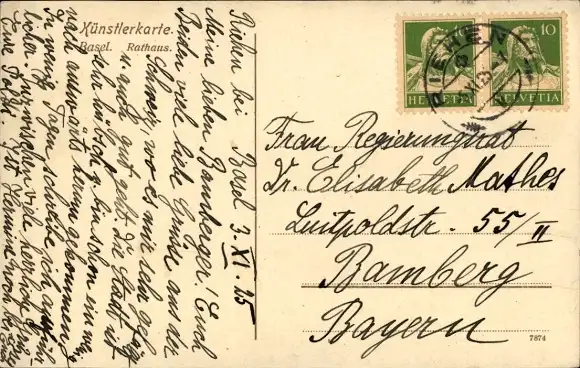 Künstlerkarte.
Basel. Rathaus.
Riehen bei Basel 3. XI 25
Meine lieben Bamberger! Euch
Beiden viele liebe Grüße aus der
Schweiz, wo es mir sehr gefällt
u. auch gut geht. Die Stadt ist
sehr hübsch
nach auswärts gekommen.
In wenig Tagen schreibe ich
Eure
HELVETIA
HELVETIA
10
RIEHEN
Frau Regierungsrat
Dr. Elisabeth Mathes
Luitpoldstr. 55/II
Bamberg
Bayern
7874